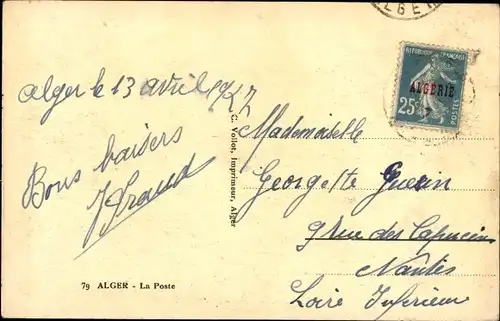 ALGER
REPUBLIQUE FRANÇAISE
ALGERIE
25c
POSTES
Alger le 13 avril 1927
Bons baisers
Mademoiselle
Georgette Guerin
9 rue des Capucins
Nantes
Loire Inférieure
C. Vollot, Imprimeur, Alger
79 ALGER - La Poste